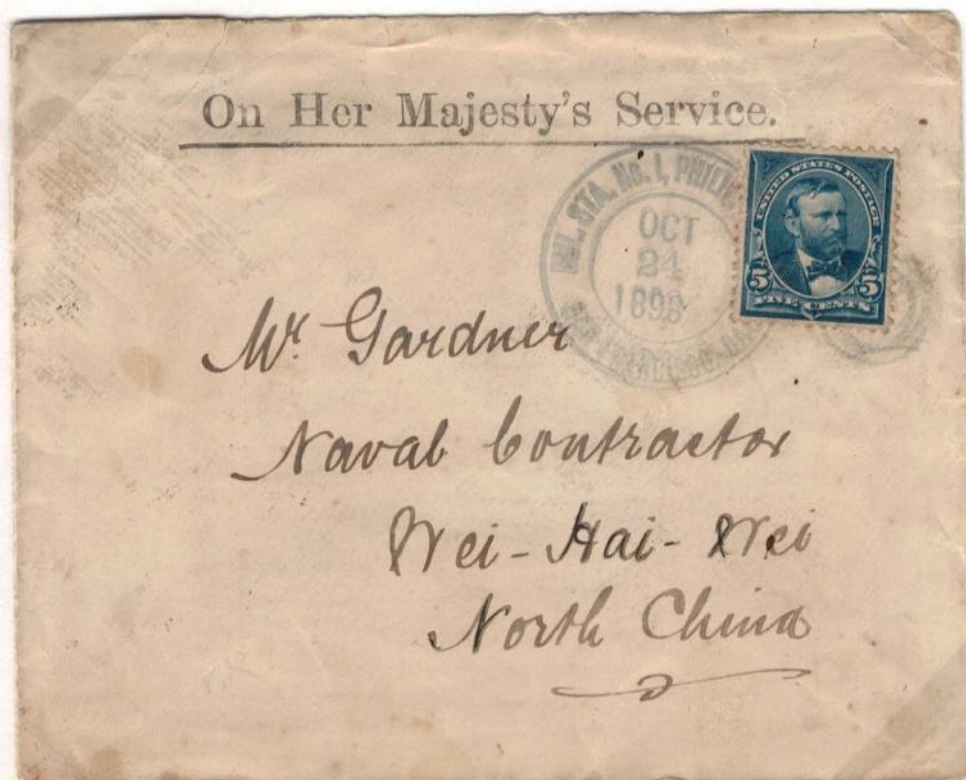 On Her Majesty's Service.
MIL. STA. No. 1, PHILIP
OCT
24
1898
SAN FRANCISCO, CA
UNITED STATES POSTAGE
5 5
FIVE CENTS
Mr. Gardner
Naval Contractor
Wei-Hai-Wei
North China